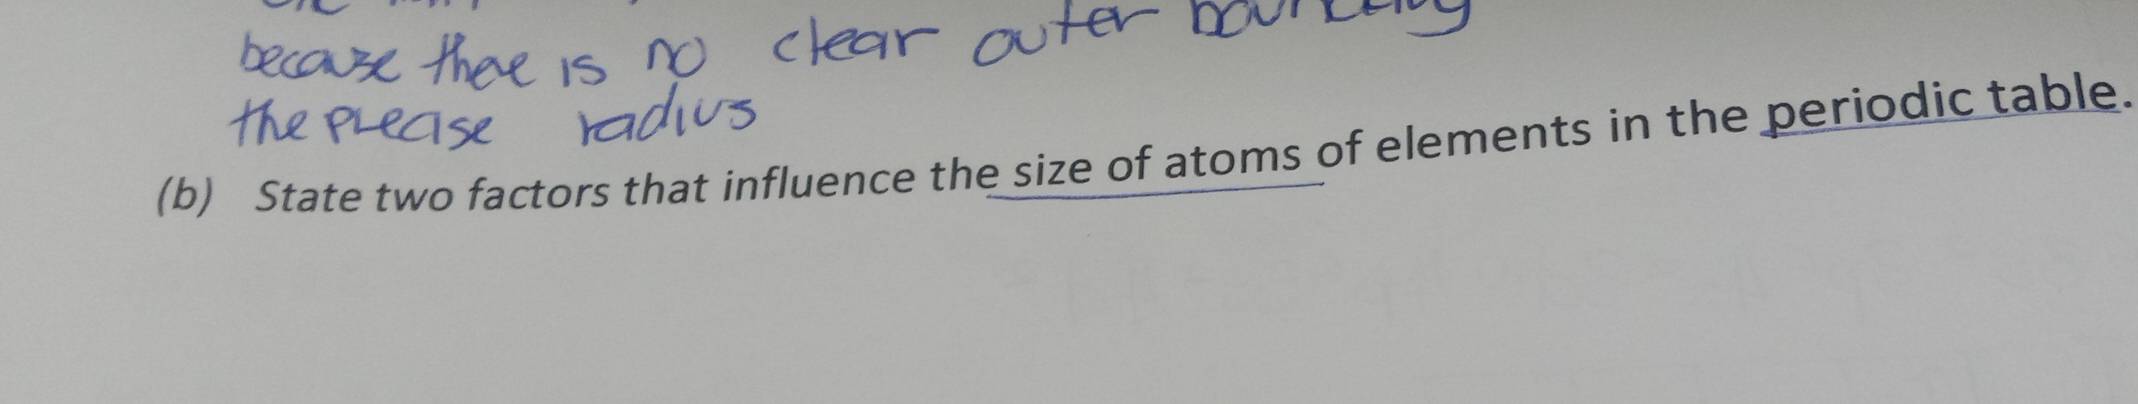 because there is no clear outer
the precise radius
(b) State two factors that influence the size of atoms of elements in the periodic table.